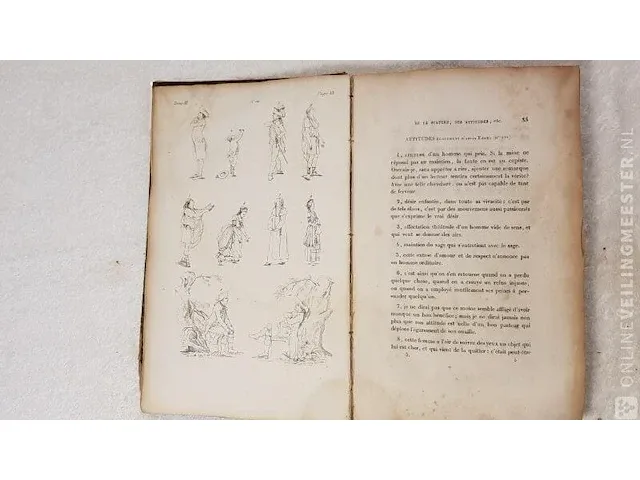 DE LA POSTURE, DES ATTITUDES, etc. 55
1, culture d'un homme qui prie. Si la mine ne
répond pas au maintien, la faute en est au copiste.
dont plus d'un lecteur sentira certainement la vérité?
Avec une telle chevelure, on n'est pas capable de tant
de ferveur.
2, désir enfantin, dans toute sa vivacité; c'est par
de tels élans, c'est par des mouvements aussi passionnés
que s'exprime le vrai désir.
3, affectation théâtrale d'un homme vide de sens, et
qui veut se donner des airs.
5, maintien du sage qui s'entretient avec le sage.
5, cette extase d'amour et de respect n'annonce pas
un homme ordinaire.
6, c'est ainsi qu'on s'en retourne quand on a perdu
quelque chose, quand on a essuyé un refus injuste,
ou quand on a employé inutilement ses peines à per-
suader quelqu'un.
7, je ne dirai pas que ce moine semble affligé d'avoir
manqué un bon bénéfice; mais je ne dirai jamais non
plus que son attitude est celle d'un bon pasteur qui
déplore l'égarement de son ouaille.
8, cette femme a l'air de suivre des yeux un objet qui
lui est cher, et qui vient de la quitter; c'était peut-être
5.
ONLINEVEILINGMEESTER.NL